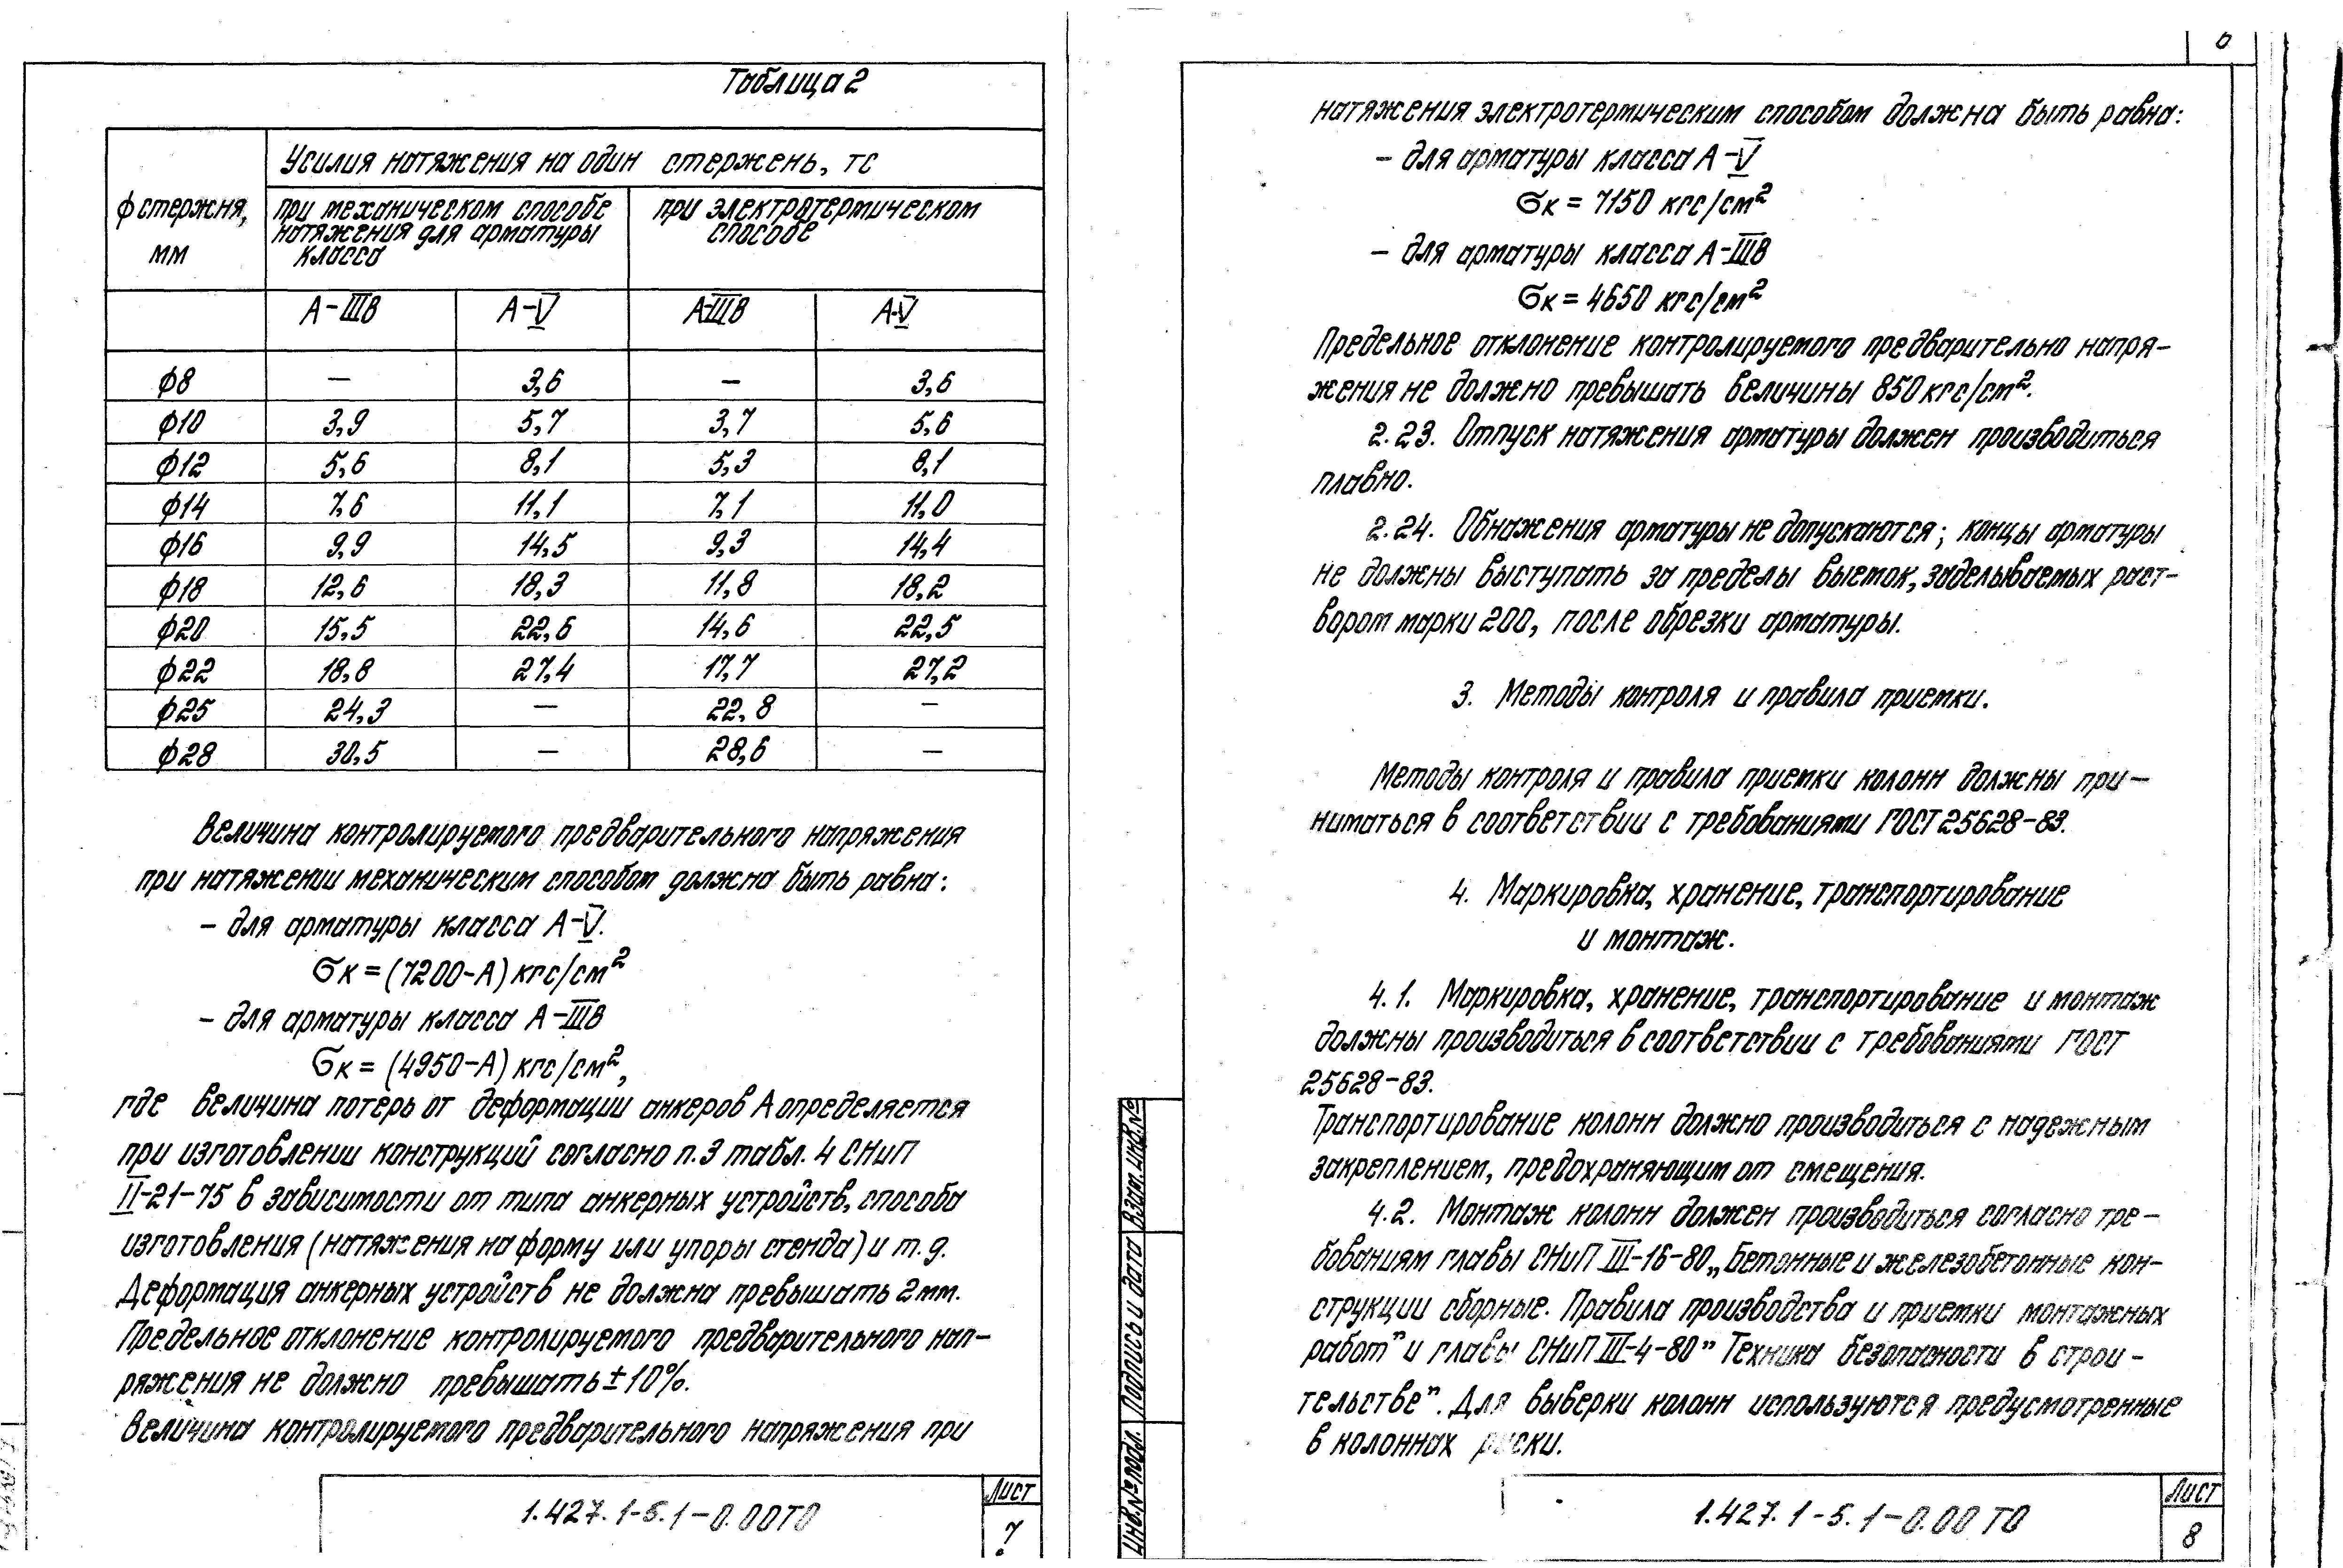 Таблица 2
ϕ стержня, мм
Усилия натяжения на один стержень, тс
при механическом способе
натяжения для арматуры
класса
при электротермическом
способе
А-IIIв А-V А-IIIв А-V
ϕ8 — 3,6 — 3,6
ϕ10 3,9 5,7 3,7 5,6
ϕ12 5,6 8,1 5,3 8,1
ϕ14 7,6 11,1 7,1 11,0
ϕ16 9,9 14,5 9,3 14,4
ϕ18 12,6 18,3 11,8 18,2
ϕ20 15,5 22,6 14,6 22,5
ϕ22 18,8 27,4 17,7 27,2
ϕ25 24,3 — 22,8 —
ϕ28 30,5 — 28,6 —
Величина контролируемого предварительного напряжения
при натяжении механическим способом должна быть равна:
– для арматуры класса А-V.
σк = (7200-А) кгс/см²
– для арматуры класса А-IIIв
σк = (4950-А) кгс/см²,
где величина потерь от деформации анкеров А определяется
при изготовлении конструкций согласно п.3 табл. 4 СНиП
II-21-75 в зависимости от типа анкерных устройств, способа
изготовления (натяжения на форму или упоры стенда) и т.д.
Деформация анкерных устройств не должна превышать 2мм.
Предельное отклонение контролируемого предварительного нап-
ряжения не должно превышать ±10%.
Величина контролируемого предварительного напряжения при
1.427.1-5.1-0.00ТО
Лист
7
6
натяжения электротермическим способом должна быть равна:
– для арматуры класса А-V
σк = 7150 кгс/см²
– для арматуры класса А-IIIв
σк = 4650 кгс/см²
Предельное отклонение контролируемого предварительно напря-
жения не должно превышать величины 850 кгс/см².
2.23. Отпуск натяжения арматуры должен производиться
плавно.
2.24. Обнажения арматуры не допускаются; концы арматуры
не должны выступать за пределы выемок, заделываемых раст-
вором марки 200, после обрезки арматуры.
3. Методы контроля и правила приемки.
Методы контроля и правила приемки колонн должны при-
ниматься в соответствии с требованиями ГОСТ 25628-83.
4. Маркировка, хранение, транспортирование
и монтаж.
4.1. Маркировка, хранение, транспортирование и монтаж
должны производиться в соответствии с требованиями ГОСТ
25628-83.
Транспортирование колонн должно производиться с надежным
закреплением, предохраняющим от смещения.
4.2. Монтаж колонн должен производиться согласно тре-
бованиям главы СНиП III-16-80 „Бетонные и железобетонные кон-
струкции сборные. Правила производства и приемки монтажных
работ" и главы СНиП III-4-80 " Техника безопасности в строи-
тельстве". Для выверки колонн используются предусмотренные
в колоннах риски.
Взам. инв.№
Подпись и дата
Инв.№ подл.
1.427.1-5.1-0.00 ТО
Лист
8